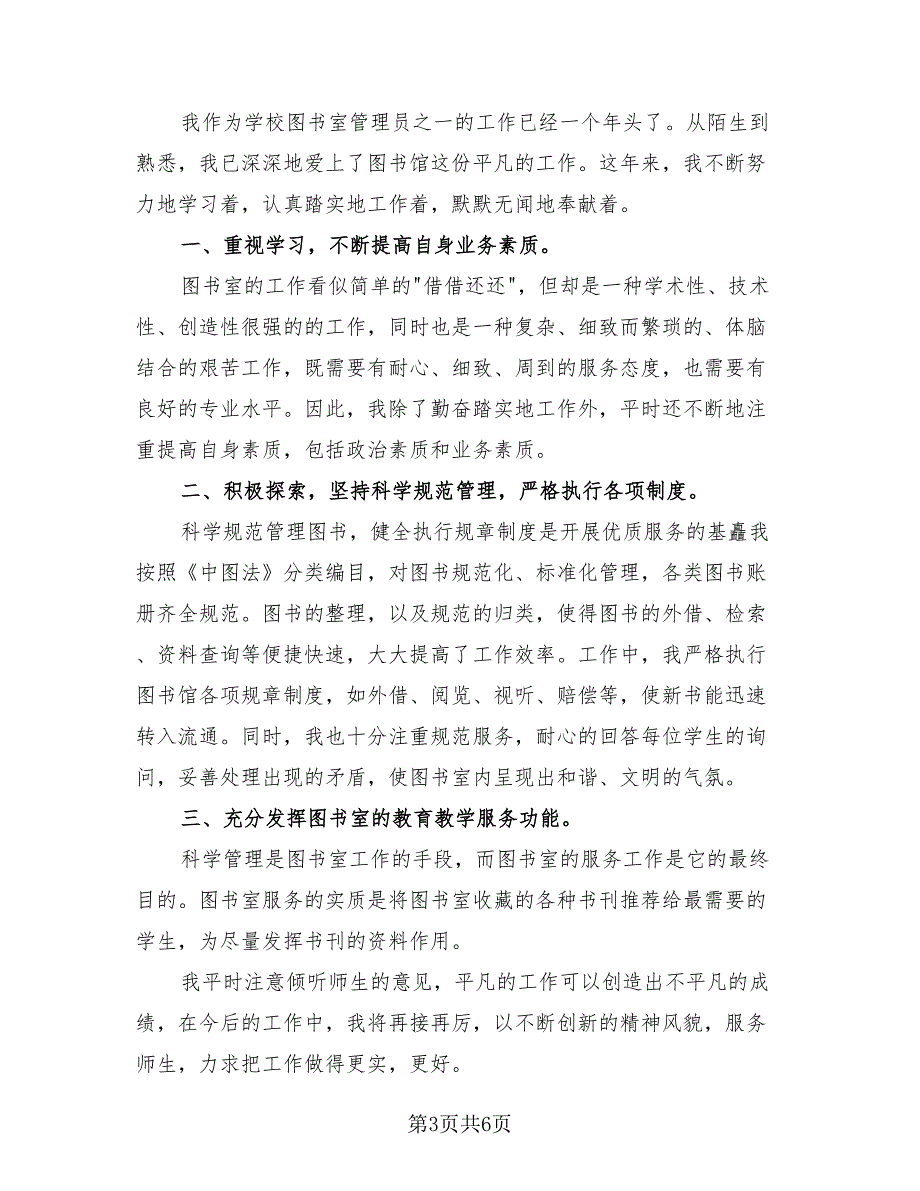 我作为学校图书室管理员之一的工作已经一个年头了。从陌生到
熟悉，我已深深地爱上了图书馆这份平凡的工作。这年来，我不断努
力地学习着，认真踏实地工作着，默默无闻地奉献着。
一、重视学习，不断提高自身业务素质。
图书室的工作看似简单的"借借还还"，但却是一种学术性、技术
性、创造性很强的的工作，同时也是一种复杂、细致而繁琐的、体脑
结合的艰苦工作，既需要有耐心、细致、周到的服务态度，也需要有
良好的专业水平。因此，我除了勤奋踏实地工作外，平时还不断地注
重提高自身素质，包括政治素质和业务素质。
二、积极探索，坚持科学规范管理，严格执行各项制度。
科学规范管理图书，健全执行规章制度是开展优质服务的基矗我
按照《中图法》分类编目，对图书规范化、标准化管理，各类图书账
册齐全规范。图书的整理，以及规范的归类，使得图书的外借、检索
、资料查询等便捷快速，大大提高了工作效率。工作中，我严格执行
图书馆各项规章制度，如外借、阅览、视听、赔偿等，使新书能迅速
转入流通。同时，我也十分注重规范服务，耐心的回答每位学生的询
问，妥善处理出现的矛盾，使图书室内呈现出和谐、文明的气氛。
三、充分发挥图书室的教育教学服务功能。
科学管理是图书室工作的手段，而图书室的服务工作是它的最终
目的。图书室服务的实质是将图书室收藏的各种书刊推荐给最需要的
学生，为尽量发挥书刊的资料作用。
我平时注意倾听师生的意见，平凡的工作可以创造出不平凡的成
绩，在今后的工作中，我将再接再厉，以不断创新的精神风貌，服务
师生，力求把工作做得更实，更好。
第3页共6页